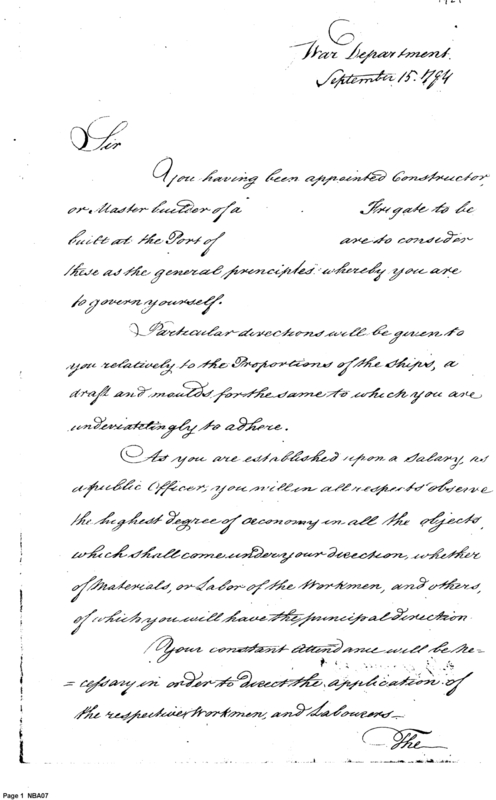 War Department.
September 15. 1794
Sir
You having been appointed Constructor,
or Master builder of a Frigate to be
built at the Port of are to consider
these as the general principles whereby you are
to govern yourself.
Particular directions will be given to
you relatively to the Proportions of the ships, a
draft and moulds for the same to which you are
undeviatingly to adhere.
As you are established upon a Salary, as
a public Officer, you will in all respects observe
the highest degree of œconomy in all the objects,
which shall come under your direction, whether
of Materials, or Labor of the Workmen, and others,
of which you will have the principal direction
Your constant attendance will be ne=
=cessary in order to direct the application of
the respective Workmen, and Labourers—
The
Page 1 NBA07